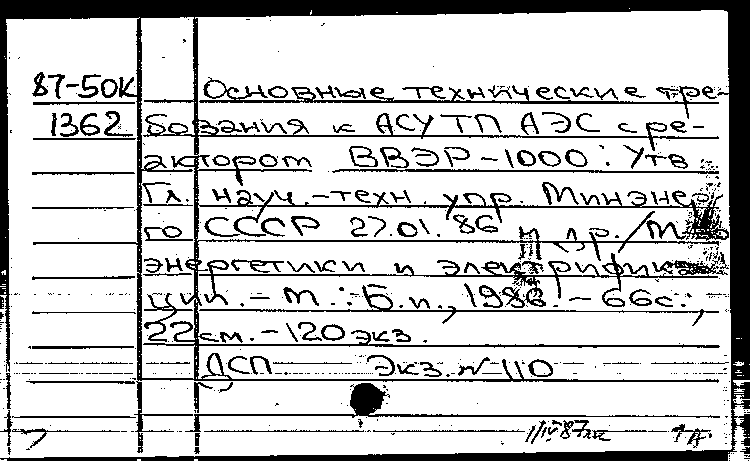 87-50К Основные технические тре-
1362 бования к АСУ ТП АЭС с ре-
актором ВВЭР-1000: Утв.
Гл. науч.-техн. упр. Минэнер-
го СССР 27.01.86 и др. / М-во
энергетики и электрифика-
ции. - М.: Б.и., 1986. - 66с.;
22см. - 120экз.
ДСП. Экз. № 110